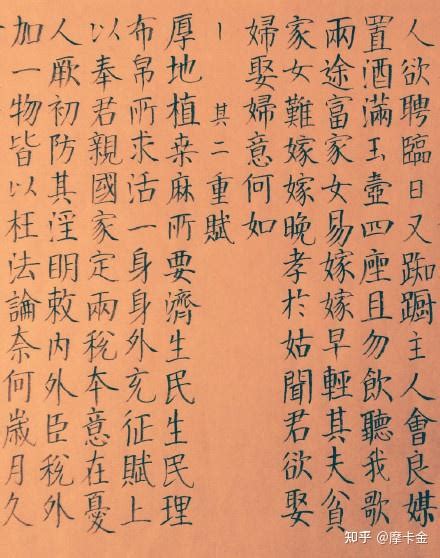 人欲聘臨日又踟躕主人會良媒
置酒滿玉壺四座且勿飲聽我歌
兩途富家女易嫁嫁早輕其夫貧
家女難嫁嫁晚孝於姑聞君欲娶
婦娶婦意何如
｜其二重賦
厚地植桒麻所要濟生民生民理
布帛所求活一身身外充征賦上
以奉君親國家定兩稅本意在憂
人厥初防其淫明敕內外臣稅外
加一物皆以枉法論奈何歲月久
知乎 @摩卡金